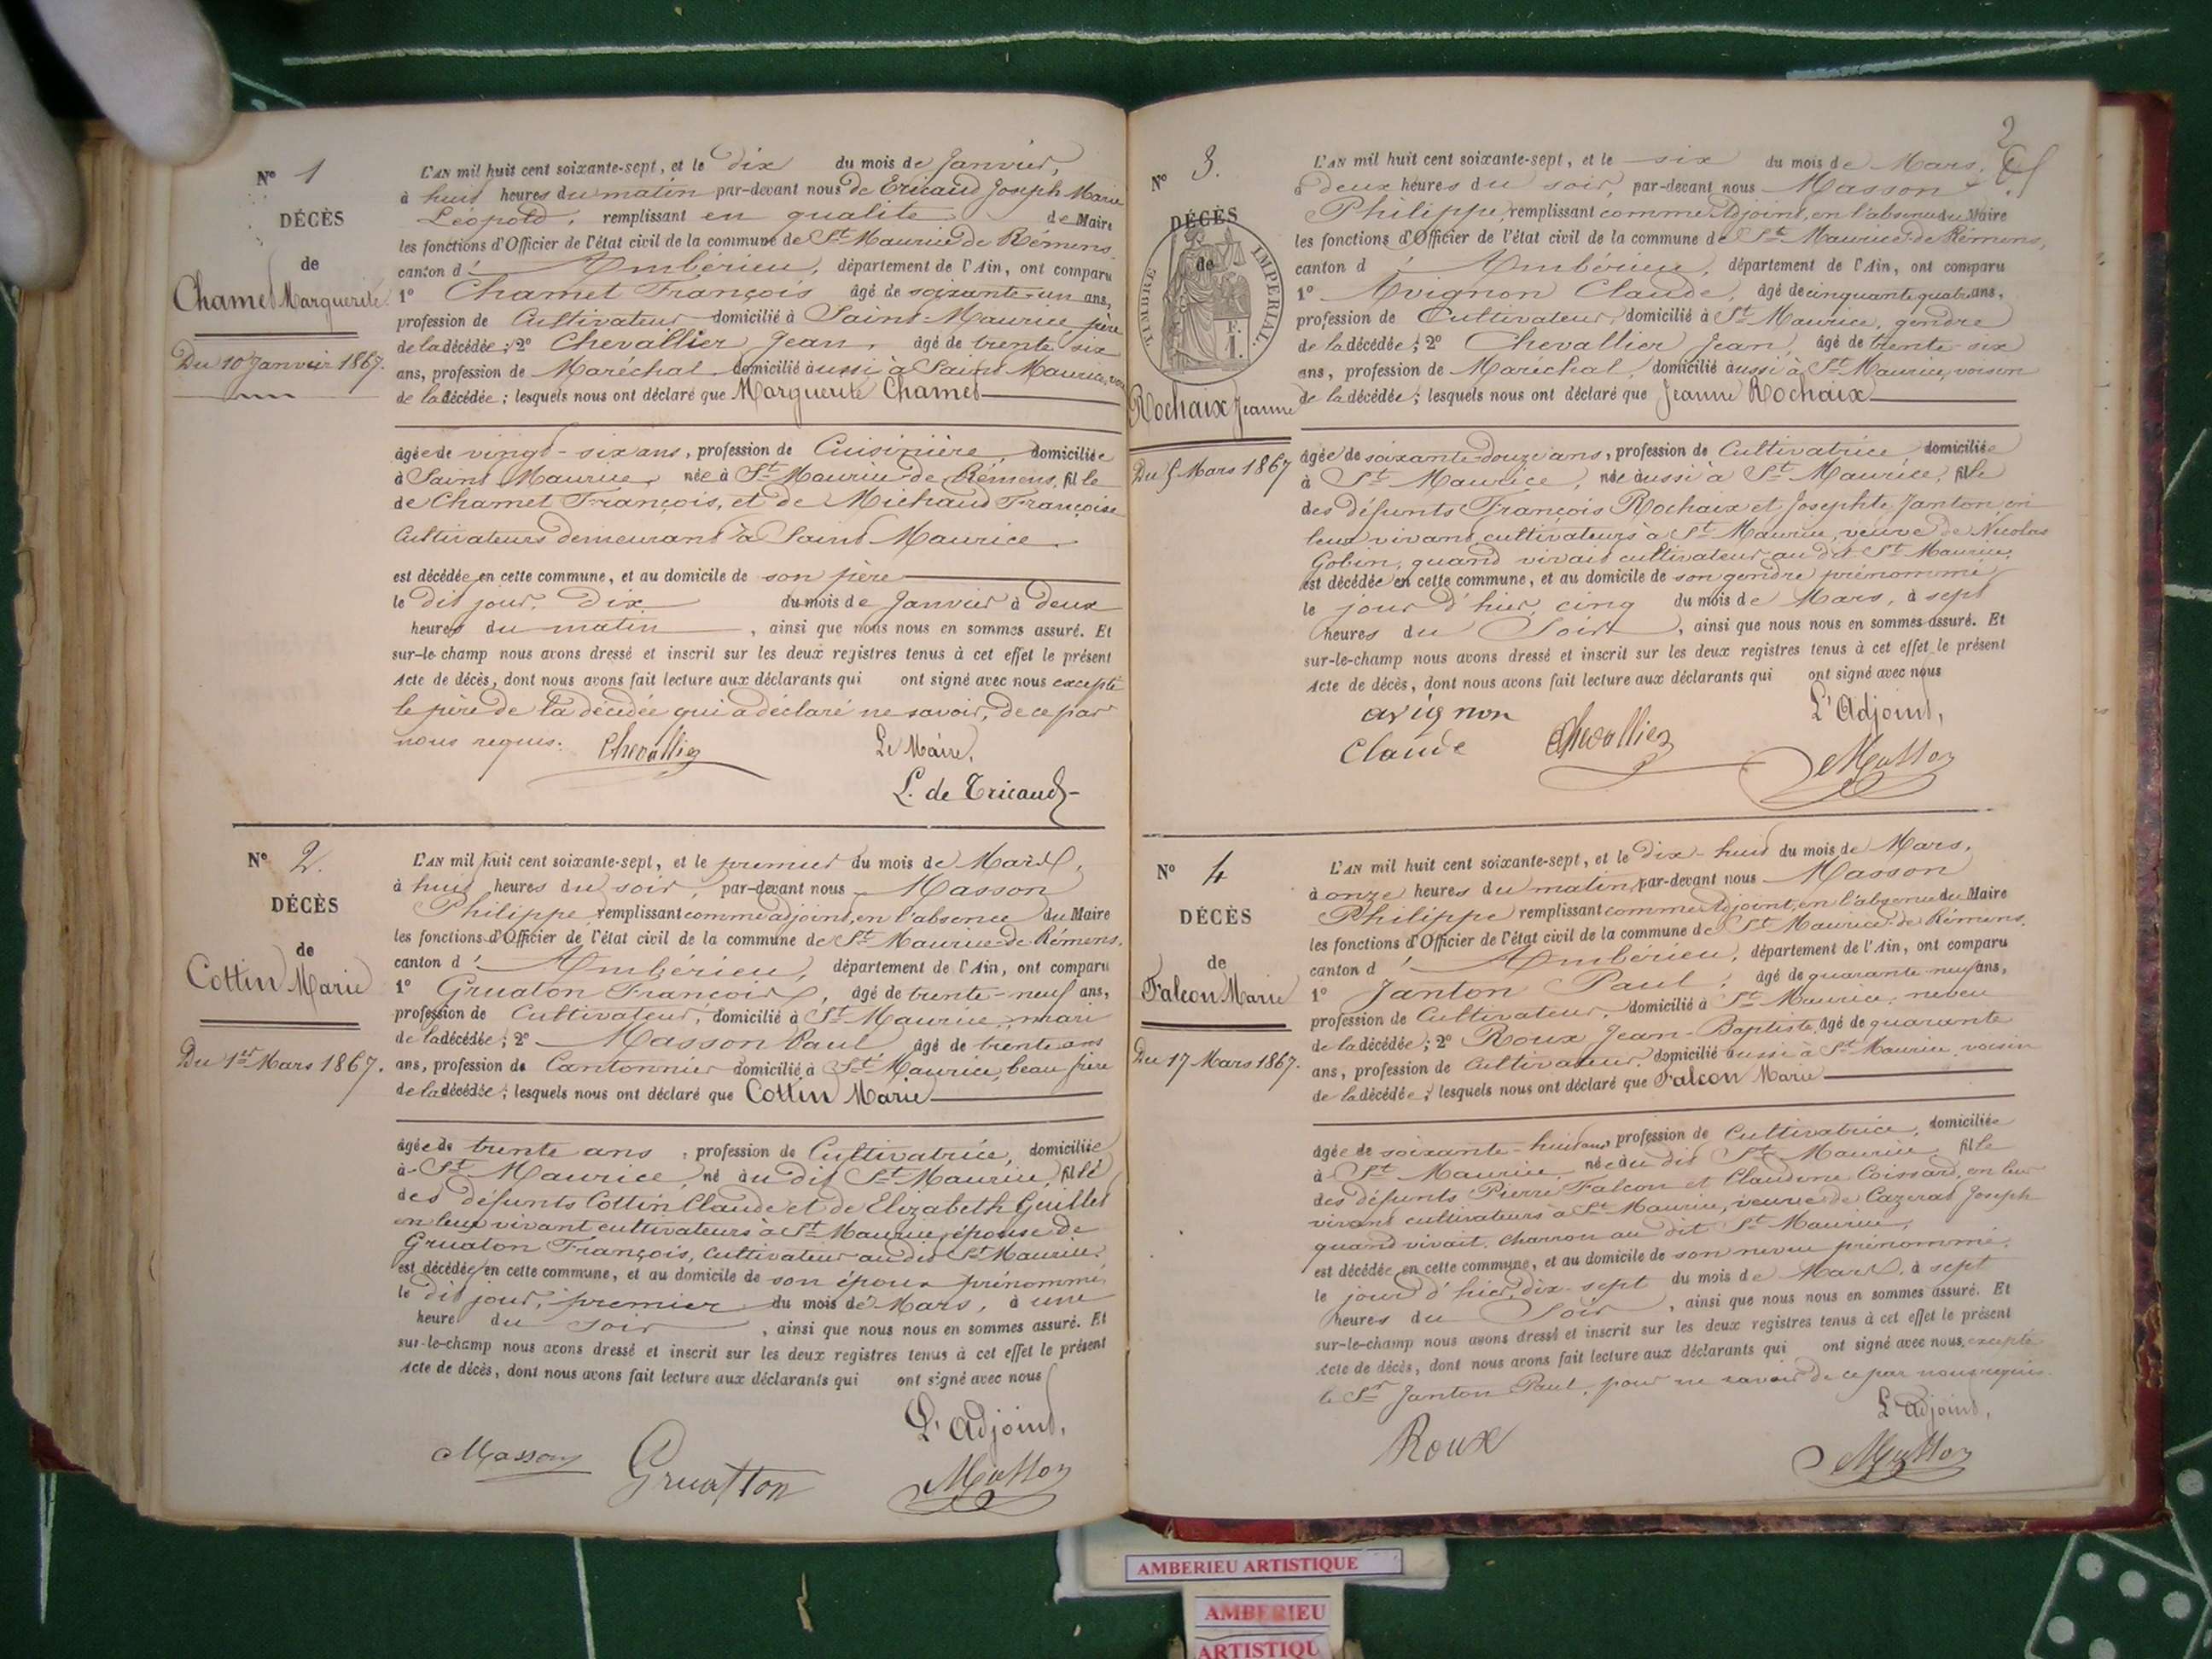 N° 1
DÉCÈS
de
Chamet Marguerite.
Du 10 Janvier 1867.
L'AN mil huit cent soixante-sept, et le dix du mois de Janvier,
à huit heures du matin par-devant nous de Tricaud Joseph Marie
Léopold, remplissant en qualité de Maire
les fonctions d'Officier de l'état civil de la commune de St Maurice de Rémens,
canton d' Ambérieu, département de l'Ain, ont comparu
1° Chamet François âgé de soixante-un ans,
profession de Cultivateur domicilié à Saint-Maurice, père
de la décédée; 2° Chevallier Jean, âgé de trente six
ans, profession de Maréchal domicilié aussi à Saint Maurice,
de la décédée; lesquels nous ont déclaré que Marguerite Chamet
âgée de vingt-six ans, profession de Cuisinière, domiciliée
à Saint Maurice, née à St Maurice de Rémens, fille
de Chamet François, et de Michaud Françoise
Cultivateurs demeurant à Saint Maurice
est décédée en cette commune, et au domicile de son père
le dit jour, dix du mois de Janvier à deux
heures du matin, ainsi que nous nous en sommes assuré. Et
sur-le-champ nous avons dressé et inscrit sur les deux registres tenus à cet effet le présent
Acte de décès, dont nous avons fait lecture aux déclarants qui ont signé avec nous excepté
le père de la décédée qui a déclaré ne savoir, de ce par
nous requis. Chevallier Le Maire,
L. de Tricaud
N° 2.
DÉCÈS
de
Cottin Marie
Du 1er Mars 1867.
L'AN mil huit cent soixante-sept, et le premier du mois de Mars,
à huit heures du soir, par-devant nous Masson
Philippe remplissant comme adjoint, en l'absence du Maire
les fonctions d'Officier de l'état civil de la commune de St Maurice de Rémens,
canton d' Ambérieu, département de l'Ain, ont comparu
1° Gruaton François, âgé de trente-neuf ans,
profession de Cultivateur, domicilié à St Maurice, mari
de la décédée; 2° Masson Paul âgé de trente ans
ans, profession de Cantonnier domicilié à St Maurice, beau frère
de la décédée; lesquels nous ont déclaré que Cottin Marie
âgée de trente ans, profession de Cultivatrice, domiciliée
à St Maurice, né au dit St Maurice, fille
des défunts Cottin Claude et de Elizabeth Guillet
en leur vivant cultivateurs à St Maurice, épouse de
Gruaton François, cultivateur au dit St Maurice.
est décédée en cette commune, et au domicile de son époux prénommé,
le dit jour, premier du mois de Mars, à une
heure du soir, ainsi que nous nous en sommes assuré. Et
sur-le-champ nous avons dressé et inscrit sur les deux registres tenus à cet effet le présent
Acte de décès, dont nous avons fait lecture aux déclarants qui ont signé avec nous
L'Adjoint,
Masson Gruatton Masson
2
N° 3.
DÉCÈS
de
TIMBRE IMPERIAL.
Rochaix Jeanne
Du 5 Mars 1867
L'AN mil huit cent soixante-sept, et le six du mois de Mars,
à deux heures du soir, par-devant nous Masson
Philippe, remplissant comme Adjoint, en l'absence du Maire
les fonctions d'Officier de l'état civil de la commune de St Maurice de Rémens,
canton d' Ambérieu, département de l'Ain, ont comparu
1° Avignon Claude, âgé de cinquante quatre ans,
profession de Cultivateur, domicilié à St Maurice, gendre
de la décédée; 2° Chevallier Jean, âgé de trente-six
ans, profession de Maréchal, domicilié aussi à St Maurice, voisin
de la décédée; lesquels nous ont déclaré que Jeanne Rochaix
âgée de soixante-douze ans, profession de Cultivatrice domiciliée
à St Maurice, née aussi à St Maurice, fille
des défunts François Rochaix et Josephte Janton, en
leur vivant cultivateurs à St Maurice, veuve de Nicolas
Gobin, quand vivait cultivateur au dit St Maurice,
est décédée en cette commune, et au domicile de son gendre prénommé
le jour d'hier, cinq du mois de Mars, à sept
heures du Soir, ainsi que nous nous en sommes assuré. Et
sur-le-champ nous avons dressé et inscrit sur les deux registres tenus à cet effet le présent
Acte de décès, dont nous avons fait lecture aux déclarants qui ont signé avec nous
avignon L'Adjoint,
Claude Chevallier Masson
N° 4
DÉCÈS
de
Falcon Marie
Du 17 Mars 1867.
L'AN mil huit cent soixante-sept, et le dix-huit du mois de Mars,
à onze heures du matin, par-devant nous Masson
Philippe remplissant comme Adjoint, en l'absence du Maire
les fonctions d'Officier de l'état civil de la commune de St Maurice de Rémens,
canton d' Ambérieu, département de l'Ain, ont comparu
1° Janton Paul, âgé de quarante-neuf ans,
profession de Cultivateur, domicilié à St Maurice, neveu
de la décédée; 2° Roux Jean-Baptiste, âgé de quarante
ans, profession de Cultivateur, domicilié aussi à St Maurice, voisin
de la décédée; lesquels nous ont déclaré que Falcon Marie
âgée de soixante-huit ans, profession de Cultivatrice, domiciliée
à St Maurice, née au dit St Maurice, fille
des défunts Pierre Falcon et Claudine Coissard, en leur
vivant cultivateurs à St Maurice, veuve de Cazeras Joseph
quand vivait, charron au dit St Maurice,
est décédée en cette commune, et au domicile de son neveu prénommé.
le jour d'hier, dix-sept du mois de Mars, à sept
heures du Soir, ainsi que nous nous en sommes assuré. Et
sur-le-champ nous avons dressé et inscrit sur les deux registres tenus à cet effet le présent
Acte de décès, dont nous avons fait lecture aux déclarants qui ont signé avec nous, excepté
le Sr Janton Paul, pour ne savoir de ce par nous requis.
L'Adjoint,
Roux Masson
AMBERIEU ARTISTIQUE
AMBERIEU
ARTISTIQU